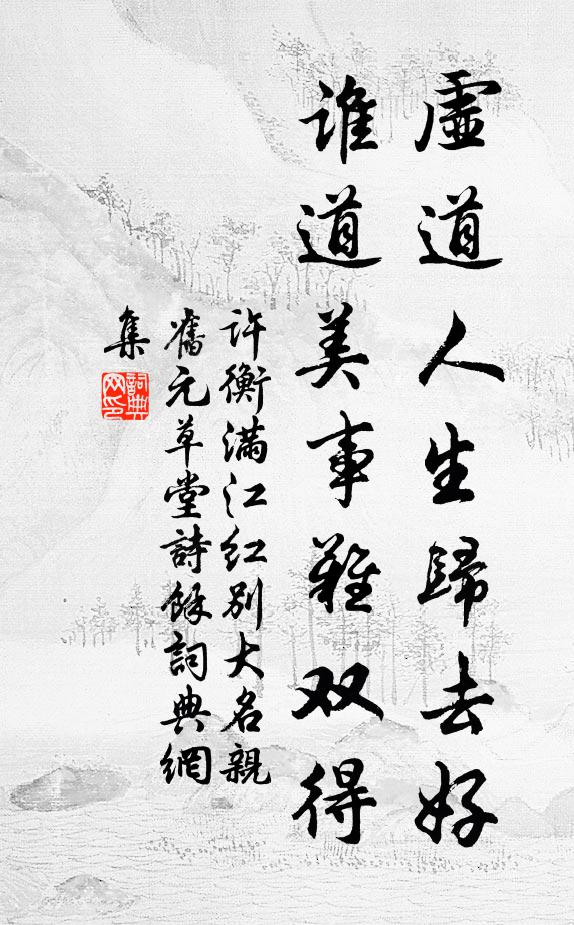 虛道人生歸去好
谁道美事難双得
许衡满江红别大名親
舊元草堂詩餘詞典網
集
詞典網印